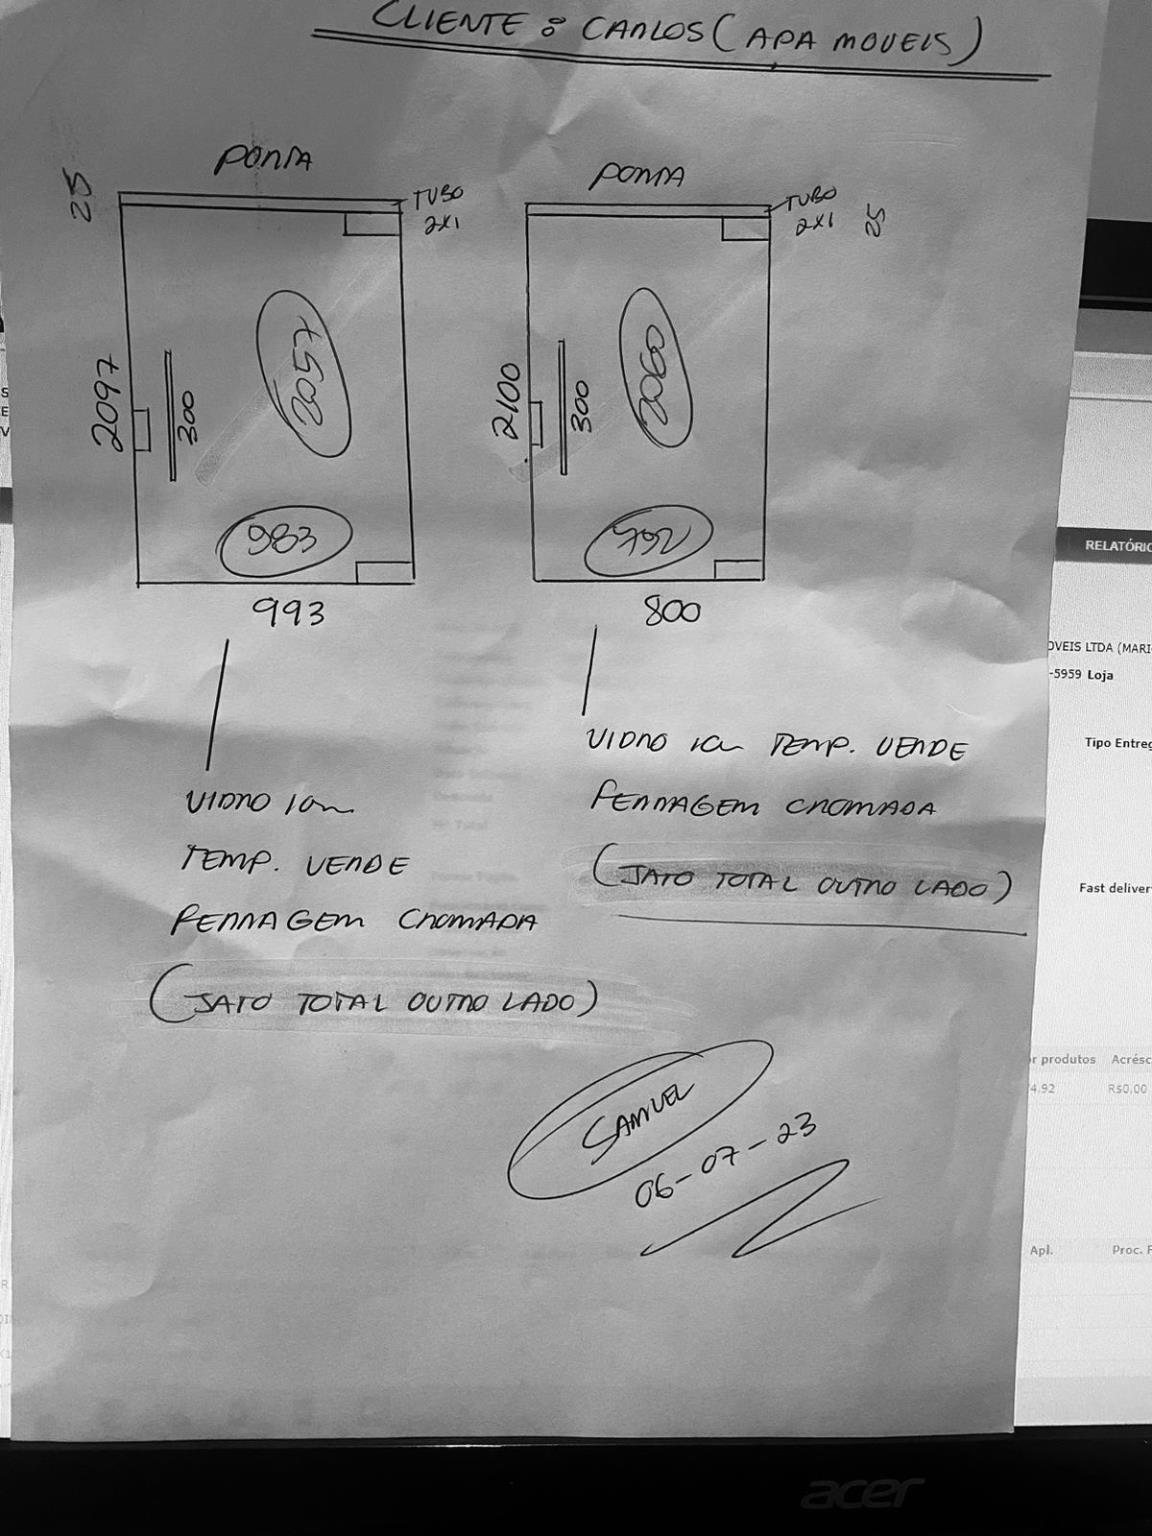 CLIENTE: CARLOS (APA MOVEIS)
PORTA
25
TUBO
2X1
2097
300
2057
983
993
PORTA
TUBO
2X1
25
2100
300
2060
792
800
VIDRO 10m
TEMP. VERDE
FERRAGEM CROMADA
(JATO TOTAL OUTRO LADO)
VIDRO 10m TEMP. VERDE
FERRAGEM CROMADA
(JATO TOTAL OUTRO LADO)
SAMUEL
06-07-23
RELATÓRIO
OVEIS LTDA (MARI
-5959 Loja
Tipo Entreg
Fast deliver
r produtos Acrésc
4.92 R$0,00
Apl. Proc. F
acer